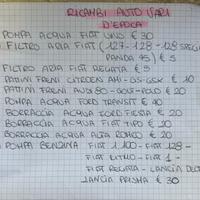 RICAMBI AUTO VARI
D'EPOCA
POMPA ACQUA FIAT UNO € 30
FILTRO ARIA FIAT (127-128-128 SPECIAL
PANDA 45) € 5
FILTRO ARIA FIAT REGATA € 5
PATTINI FRENI CITROEN AMI-DS-GSX € 10
PATTINI FRENI AUDI 80-GOLF-POLO € 20
POMPA ACQUA FORD TRANSIT € 40
BORRACCIA ACQUA FORD FIESTA € 20
BORRACCIA ACQUA FIAT TIPO € 20
BORRACCIA ACQUA ALFA ROMEO € 20
POMPA BENZINA FIAT 1100-FIAT 128-
FIAT RITMO-FIAT 1-
FIAT REGATA-LANCIA DELTA
LANCIA PRISMA € 30